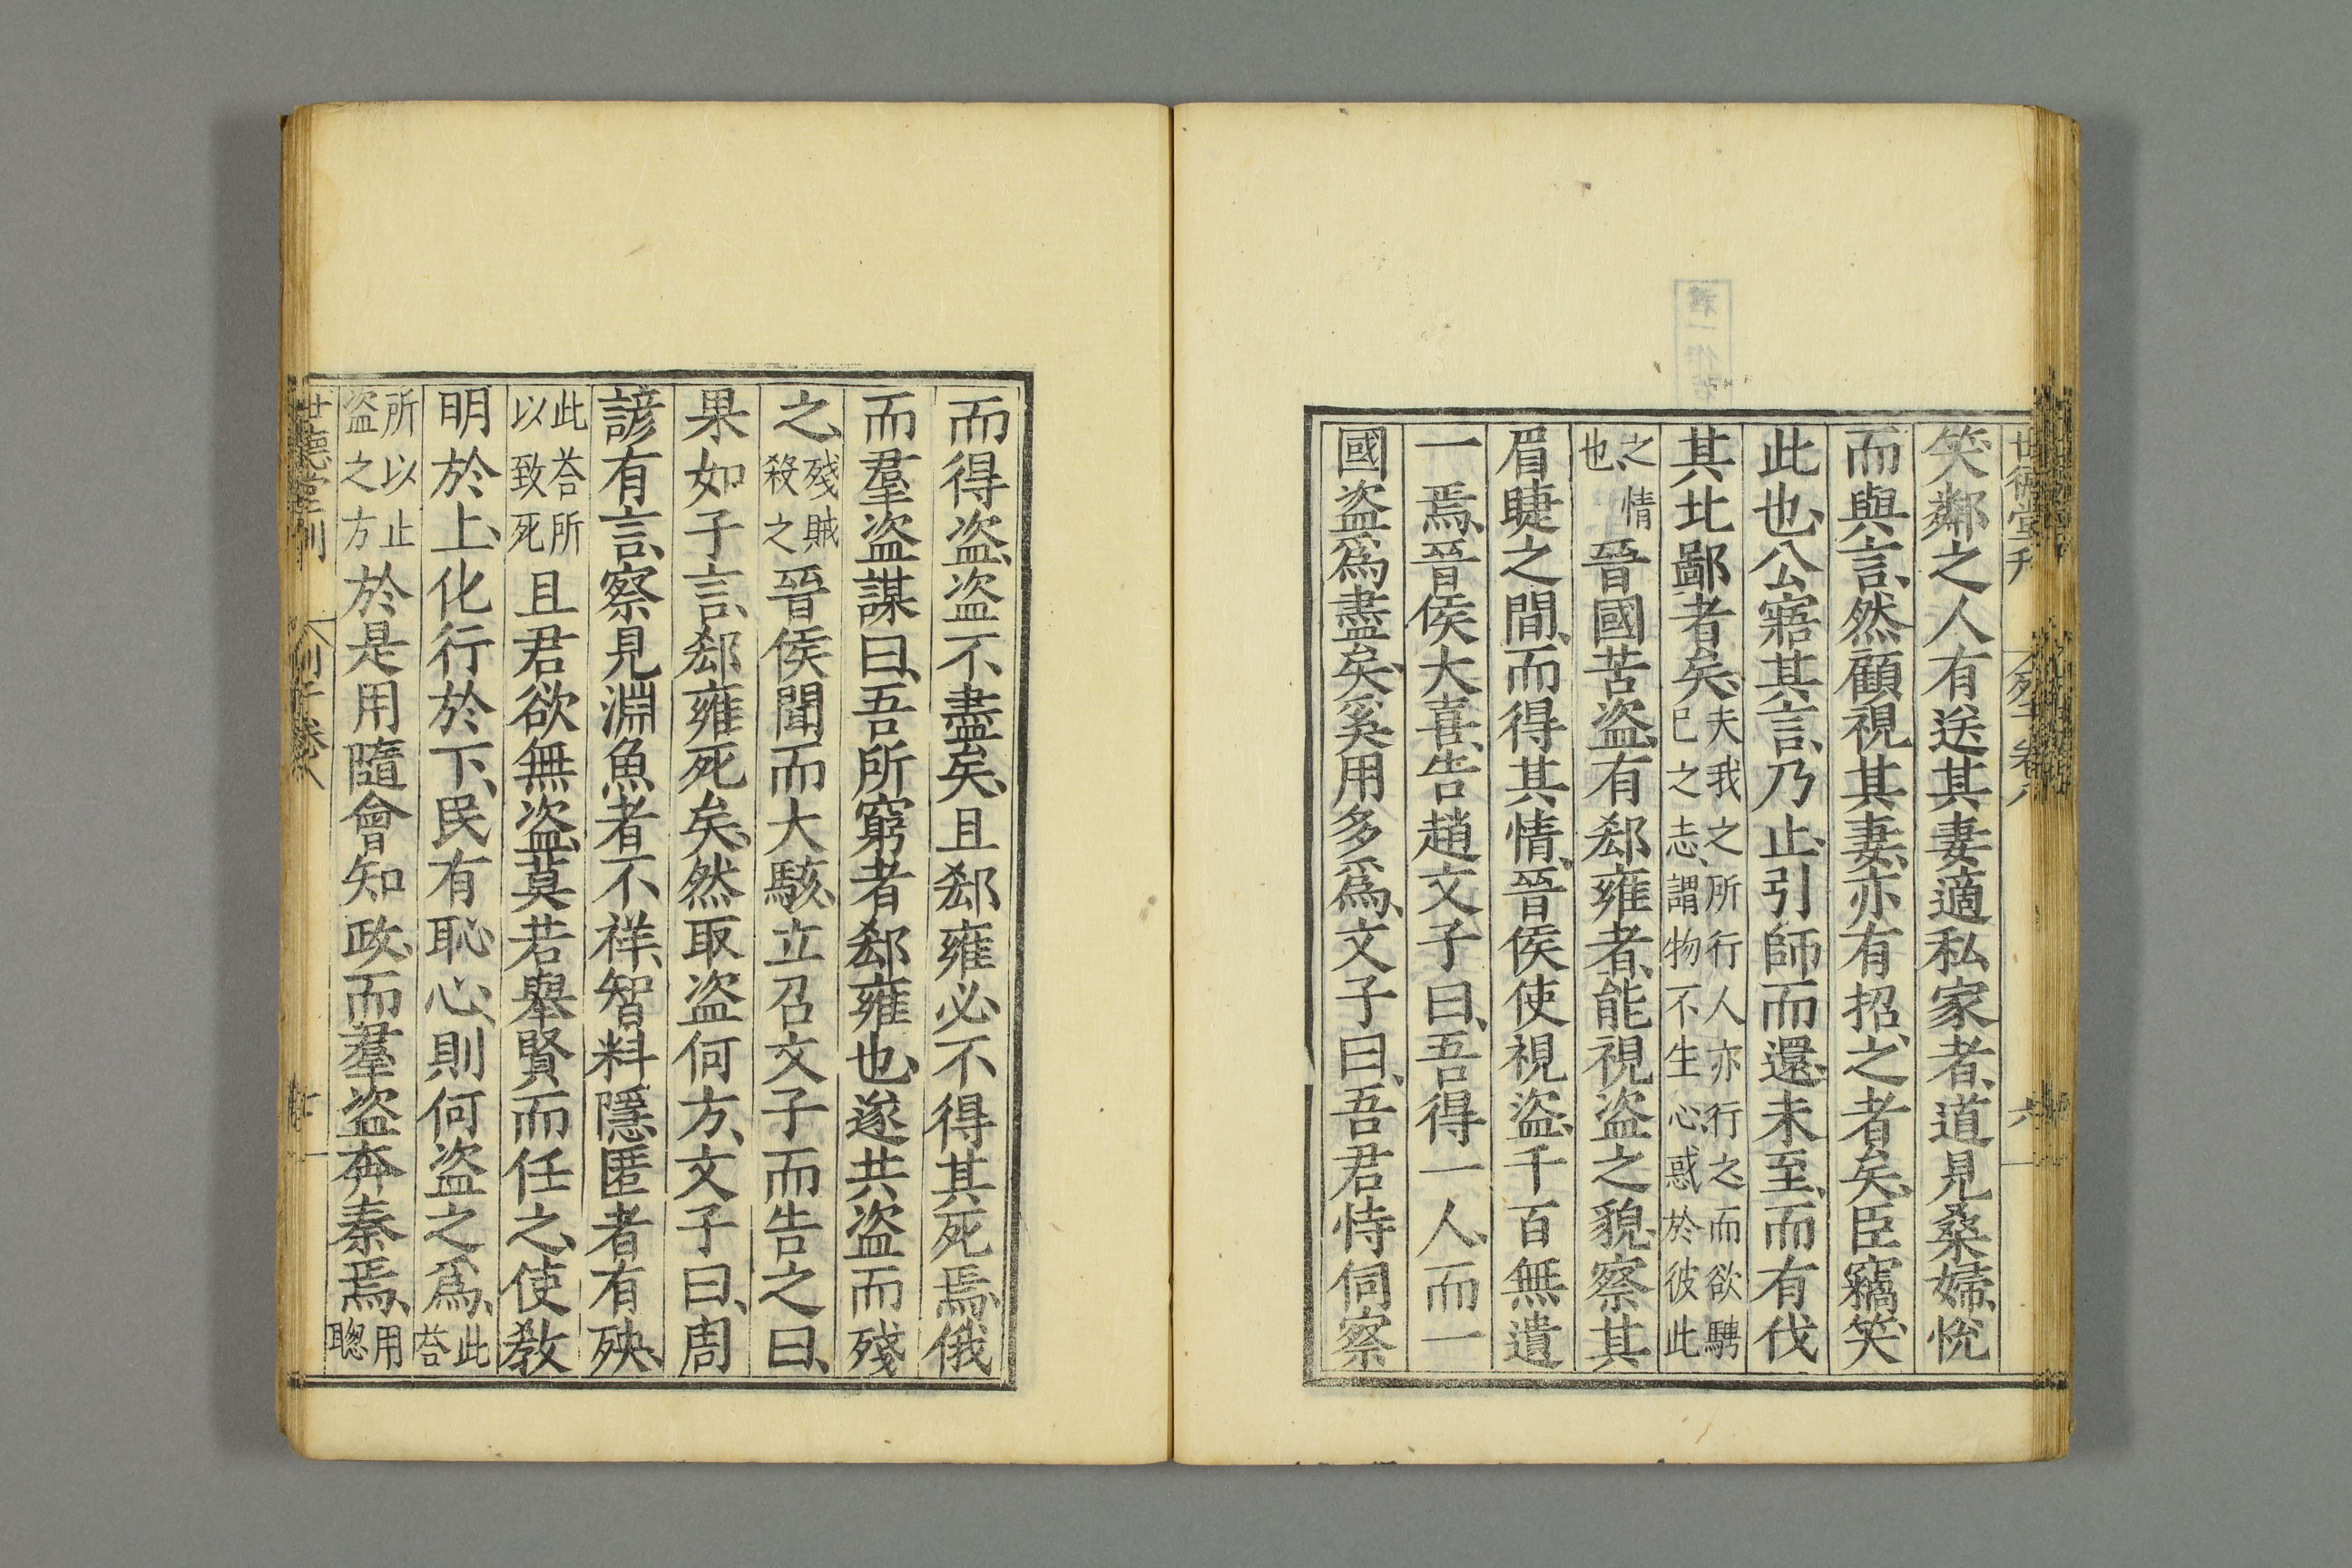 笑鄰之人有送其妻適私家者、道見桑婦、悅
而與言、然顧視其妻、亦有招之者矣、臣竊笑
此也、公寤其言、乃止、引師而還、未至、而有伐
其北鄙者矣、夫我之所行人亦行之而欲騁
己之志、謂物不生心惑於彼此
之情
也、晉國苦盜、有郄雍者、能視盜之貌、察其
眉睫之間、而得其情、晉侯使視盜、千百無遺
一焉、晉侯大喜、告趙文子曰、吾得一人、而一
國盜爲盡矣、奚用多爲、文子曰、吾君恃伺察
而得盜、盜不盡矣、且郄雍必不得其死焉、俄
而羣盜謀曰、吾所窮者郄雍也、遂共盜而殘
之、殘賊
殺之晉侯聞而大駭、立召文子而告之曰、
果如子言、郄雍死矣、然取盜何方、文子曰、周
諺有言、察見淵魚者不祥、智料隱匿者有殃、
此荅所
以致死且君欲無盜、莫若舉賢而任之、使敎
明於上、化行於下、民有恥心、則何盜之爲、此
荅
所以止
盜之方於是用隨會知政、而羣盜奔秦焉、用
聰
世德堂刊
列子卷八